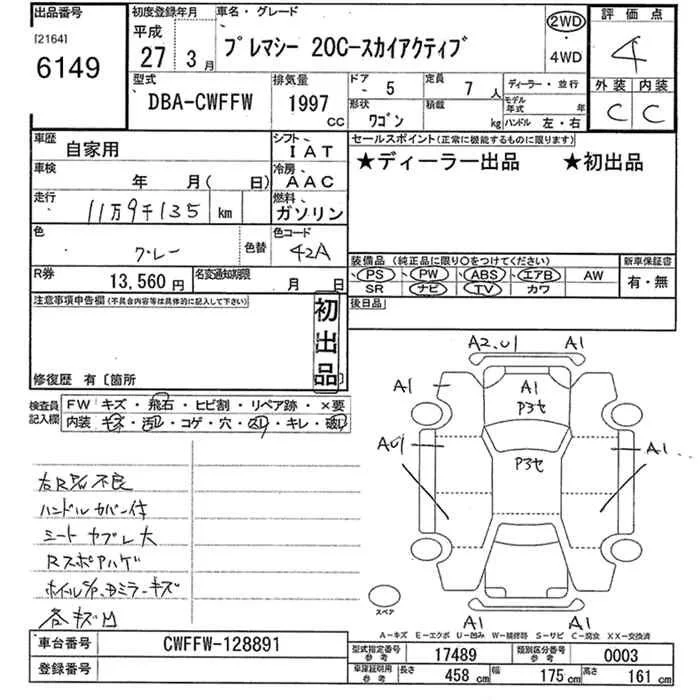 出品番号
[2164]
6149
初度登録年月
平成
27 3月
車名・グレード
プレマシー 20C-スカイアクティブ
2WD
・
4WD
評価点
4
外装 内装
C C
型式
DBA-CWFFW
排気量
1997
CC
ドア 5
形状 ワゴン
定員 7 人
積載 kg
ディーラー・並行
モデル年式 年
ハンドル 左・右
車歴
自家用
シフト
IAT
車検
年 月( 日)
冷房
AAC
走行
11万9千135 km
燃料
ガソリン
色
グレー
色替
色コード
42A
R券
13,560円
名変通知期限
月 日
セールスポイント(正常に機能するものに限ります)
★ディーラー出品 ★初出品
装備品(純正品に限り○をつけてください)
新車保証書
PS PW ABS エアB AW
SR ナビ TV カワ
有・無
後日品
注意事項申告欄(不具合内容等は具体的に記入して下さい)
初出品
修復歴 有〔箇所
検査員記入欄
FW キズ・飛石・ヒビ割・リペア跡・×要
内装 キズ・汚レ・コゲ・穴・スリ・キレ・破レ
不良
ハンドルカバー付
シートヤブレ大
ミラーキズ
各キズ凹
A2.U1 A1
A1
A1
P3セ
A1
P3セ
A1
A1 A1
スペア
A-キズ E-エクボ U-凹み W-補修跡 S-サビ C-腐食 XX-交換済
車台番号
CWFFW-128891
登録番号
型式指定番号 参考
17489
類別区分番号 参考
0003
車庫証明用 参考
長さ 458 cm
幅 175 cm
高さ 161 cm